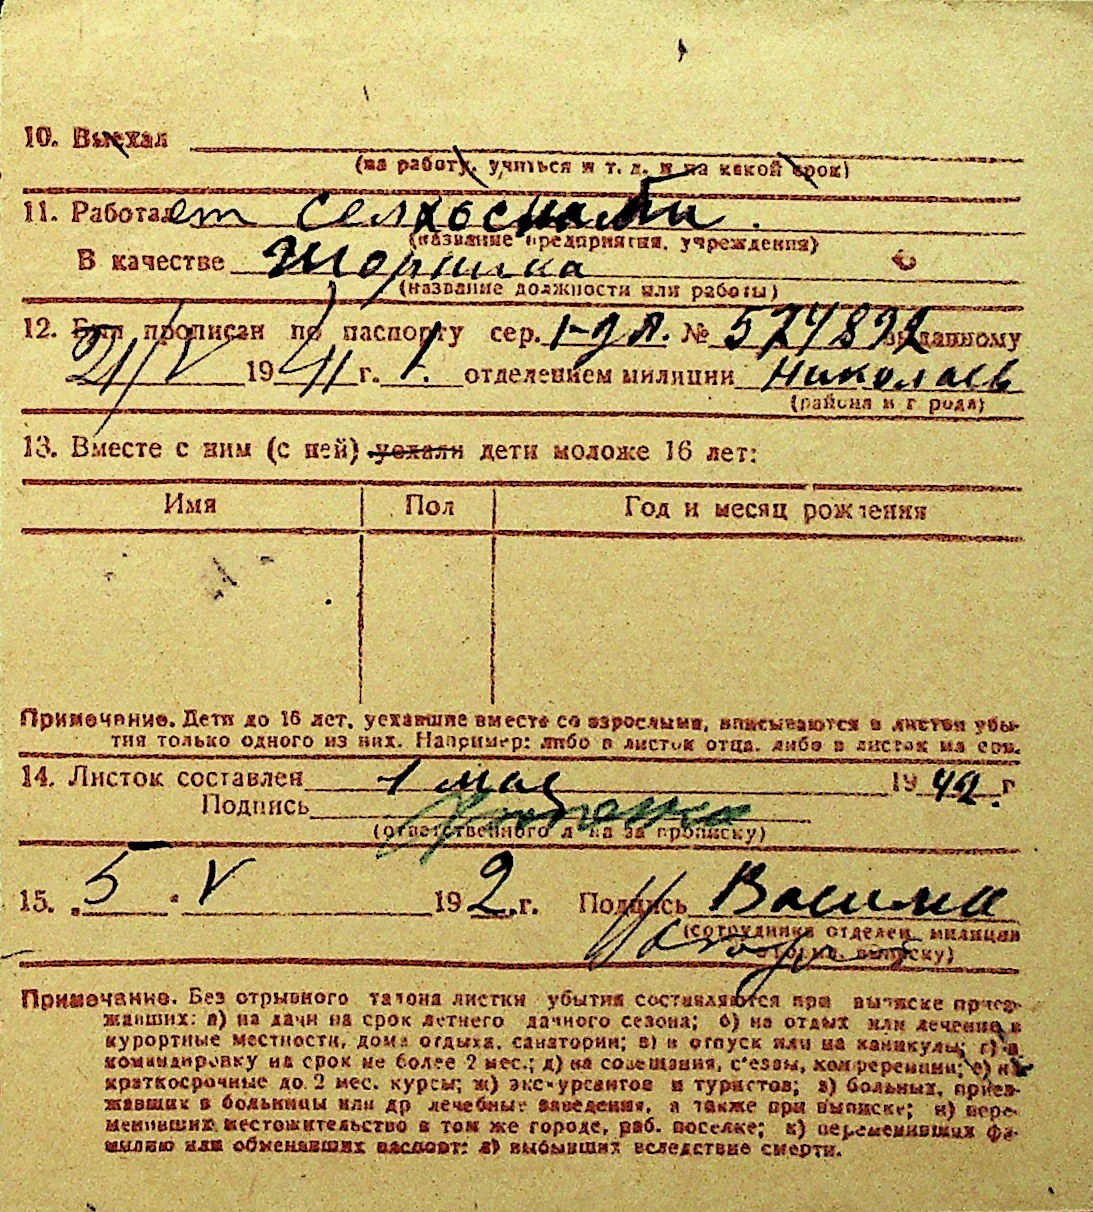 10. Выехал
(на работу, учиться и т. д. и на какой срок)
11. Работает
(название предприятия, учреждения)
В качестве
(название должности или работы)
12. Был прописан по паспорту сер. № 574892 выданному
21/V 1941 г. 1. отделением милиции Николаев
(района и города)
13. Вместе с ним (с ней) уехали дети моложе 16 лет:
Имя Пол Год и месяц рождения
Примечание. Дети до 16 лет, уехавшие вместе со взрослыми, вписываются в листок убы-
тия только одного из них. Например: либо в листок отца, либо в листок матери.
14. Листок составлен 1 мая 1942. г
Подпись
(ответственного лица за прописку)
15. 5 V 192. г. Подпись
(сотрудника отделен. милиции
выписку)
Примечание. Без отрывного талона листки убытия составляются при выписке приез-
жавших: а) на дачи на срок летнего дачного сезона; б) на отдых или лечение в
курортные местности, дома отдыха, санатории; в) в отпуск или на каникулы; г) в
командировку на срок не более 2 мес.; д) на совещания, с'езды, конференции; е) на
краткосрочные до 2 мес. курсы; ж) экскурсантов и туристов; з) больных, приез-
жавших в больницы или др лечебные заведения, а также при выписке; и) пере-
менивших местожительство в том же городе, раб. поселке; к) переменивших фа-
милию или обменявших паспорт; л) выбывших вследствие смерти.